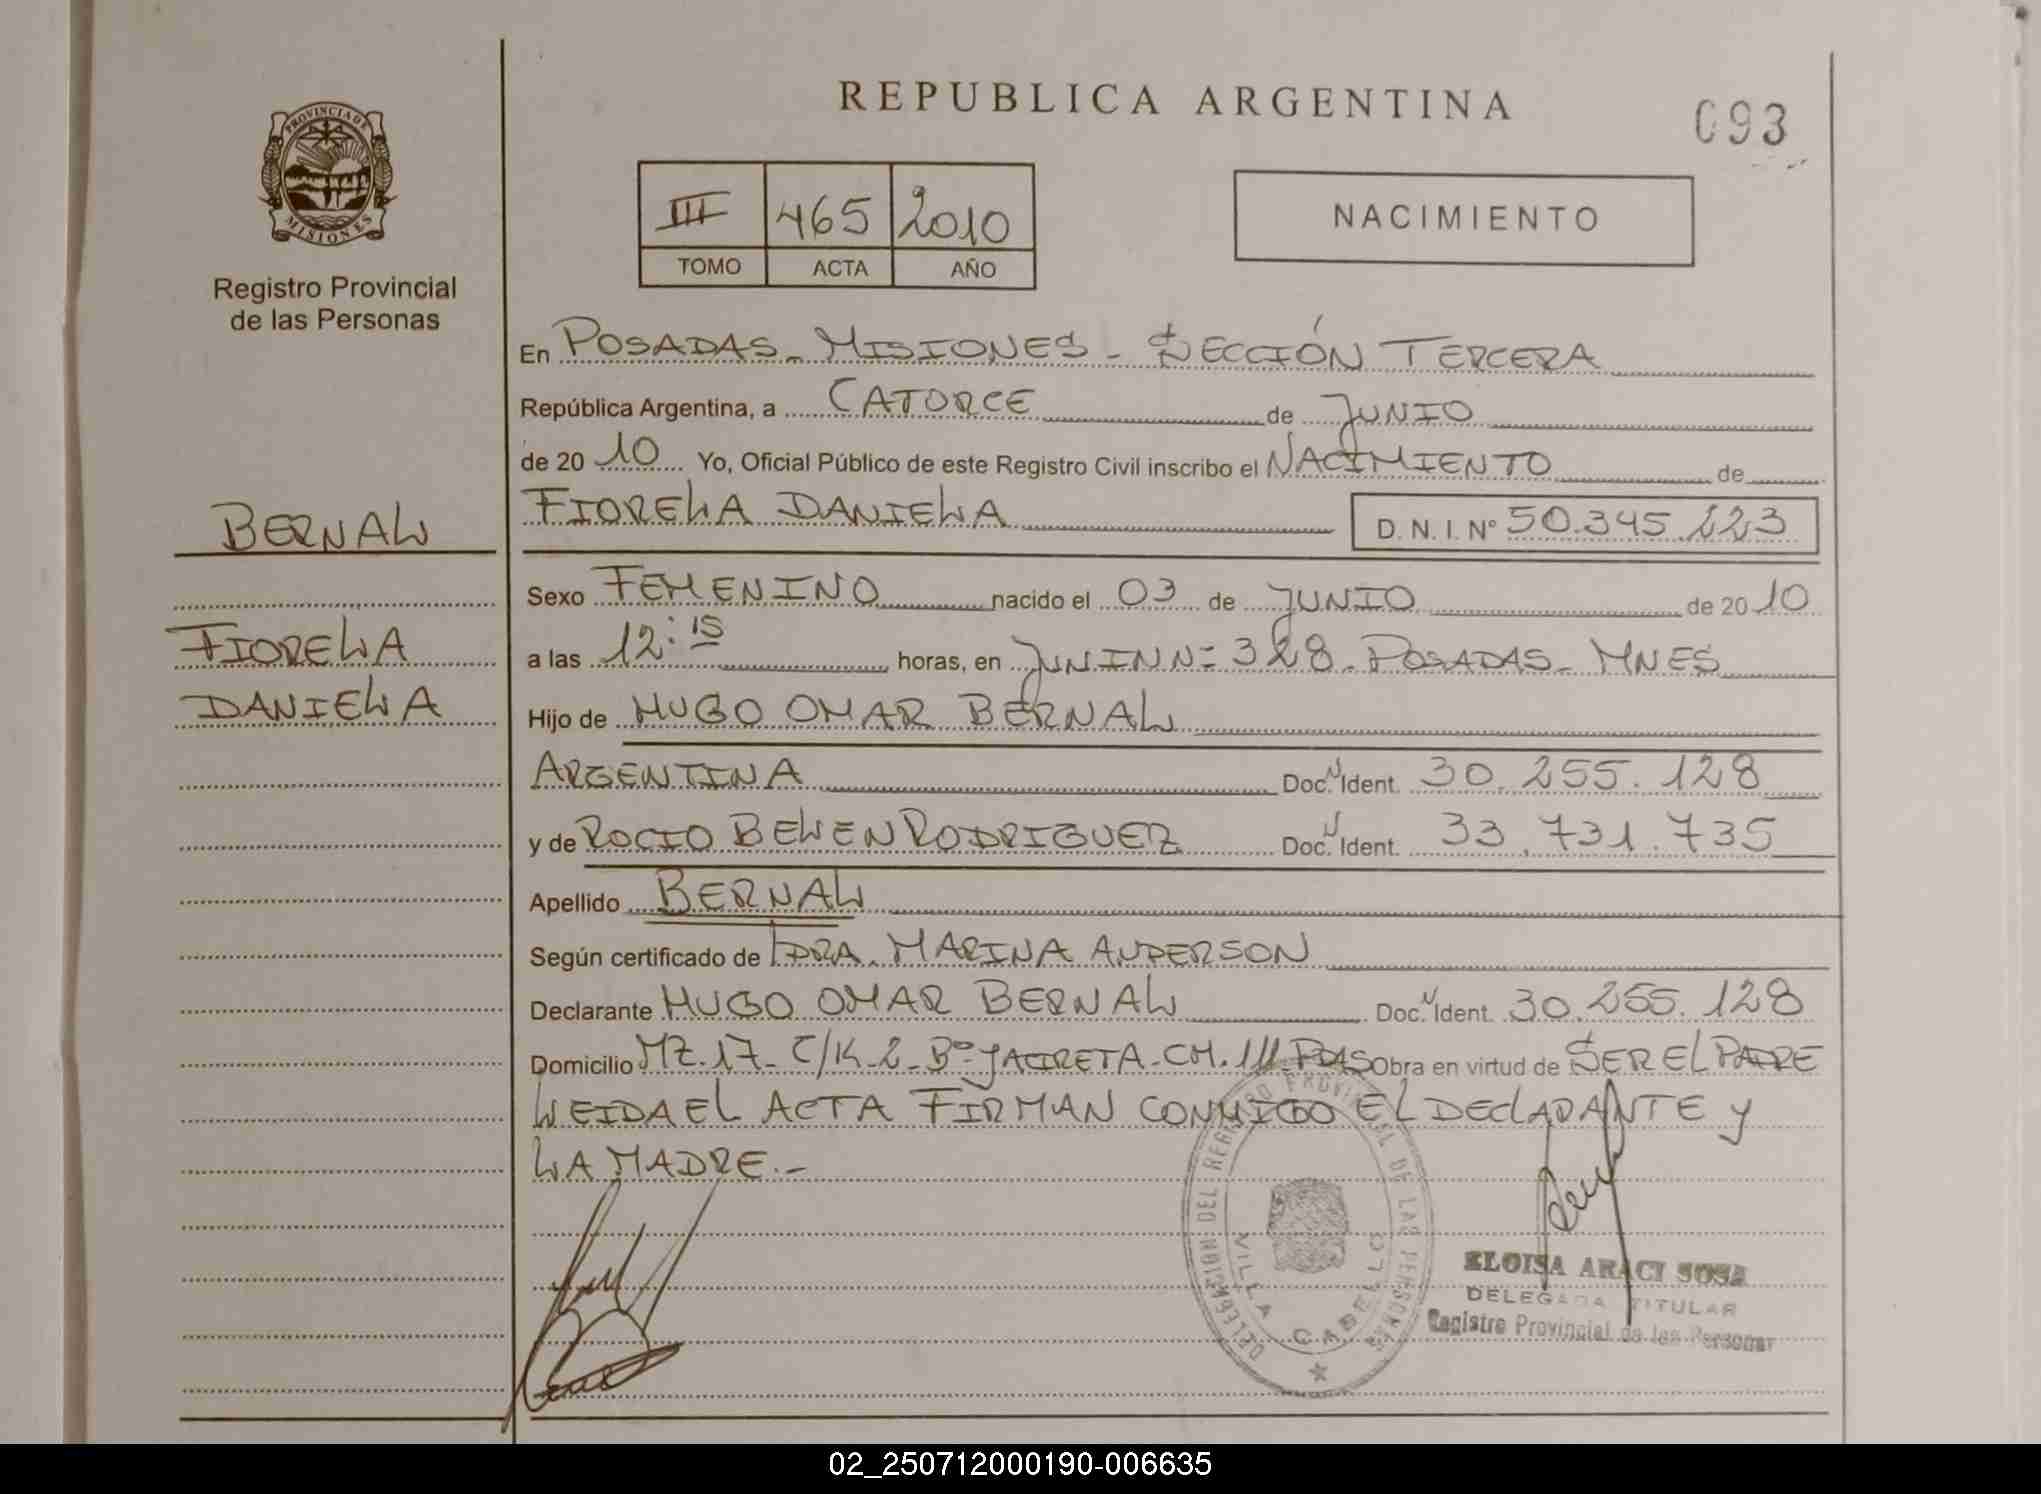 REPUBLICA ARGENTINA
093
PROVINCIA DE
MISIONES
Registro Provincial
de las Personas
III 465 2010
TOMO ACTA AÑO
NACIMIENTO
En POSADAS - MISIONES - SECCIÓN TERCERA
República Argentina, a CATORCE de JUNIO
de 20 10 Yo, Oficial Público de este Registro Civil inscribo el NACIMIENTO de
FIORELLA DANIELA D.N.I. Nº 50.345.223
BERNAL
FIORELLA
DANIELA
Sexo FEMENINO nacido el 03 de JUNIO de 20 10
a las 12:15 horas, en JUNIN Nº 328 - POSADAS - MNES
Hijo de HUGO OMAR BERNAL
ARGENTINA Doc. Ident. 30.255.128
y de ROCIO BELEN RODRIGUEZ Doc. Ident. 33.731.735
Apellido BERNAL
Según certificado de DRA. MARINA ANDERSON
Declarante HUGO OMAR BERNAL Doc. Ident. 30.255.128
Domicilio MZ.17- C/K 2- Bº JACIRETA - CH. 111 PDAS Obra en virtud de SER EL PADRE
LEIDA EL ACTA FIRMAN CONMIGO EL DECLARANTE Y
LA MADRE.-
DELEGACION DEL REGISTRO PROVINCIAL DE LAS PERSONAS
VILLA CABELLO
ELOISA ARACI SOSA
DELEGADA TITULAR
Registro Provincial de las Personas
02_250712000190-006635